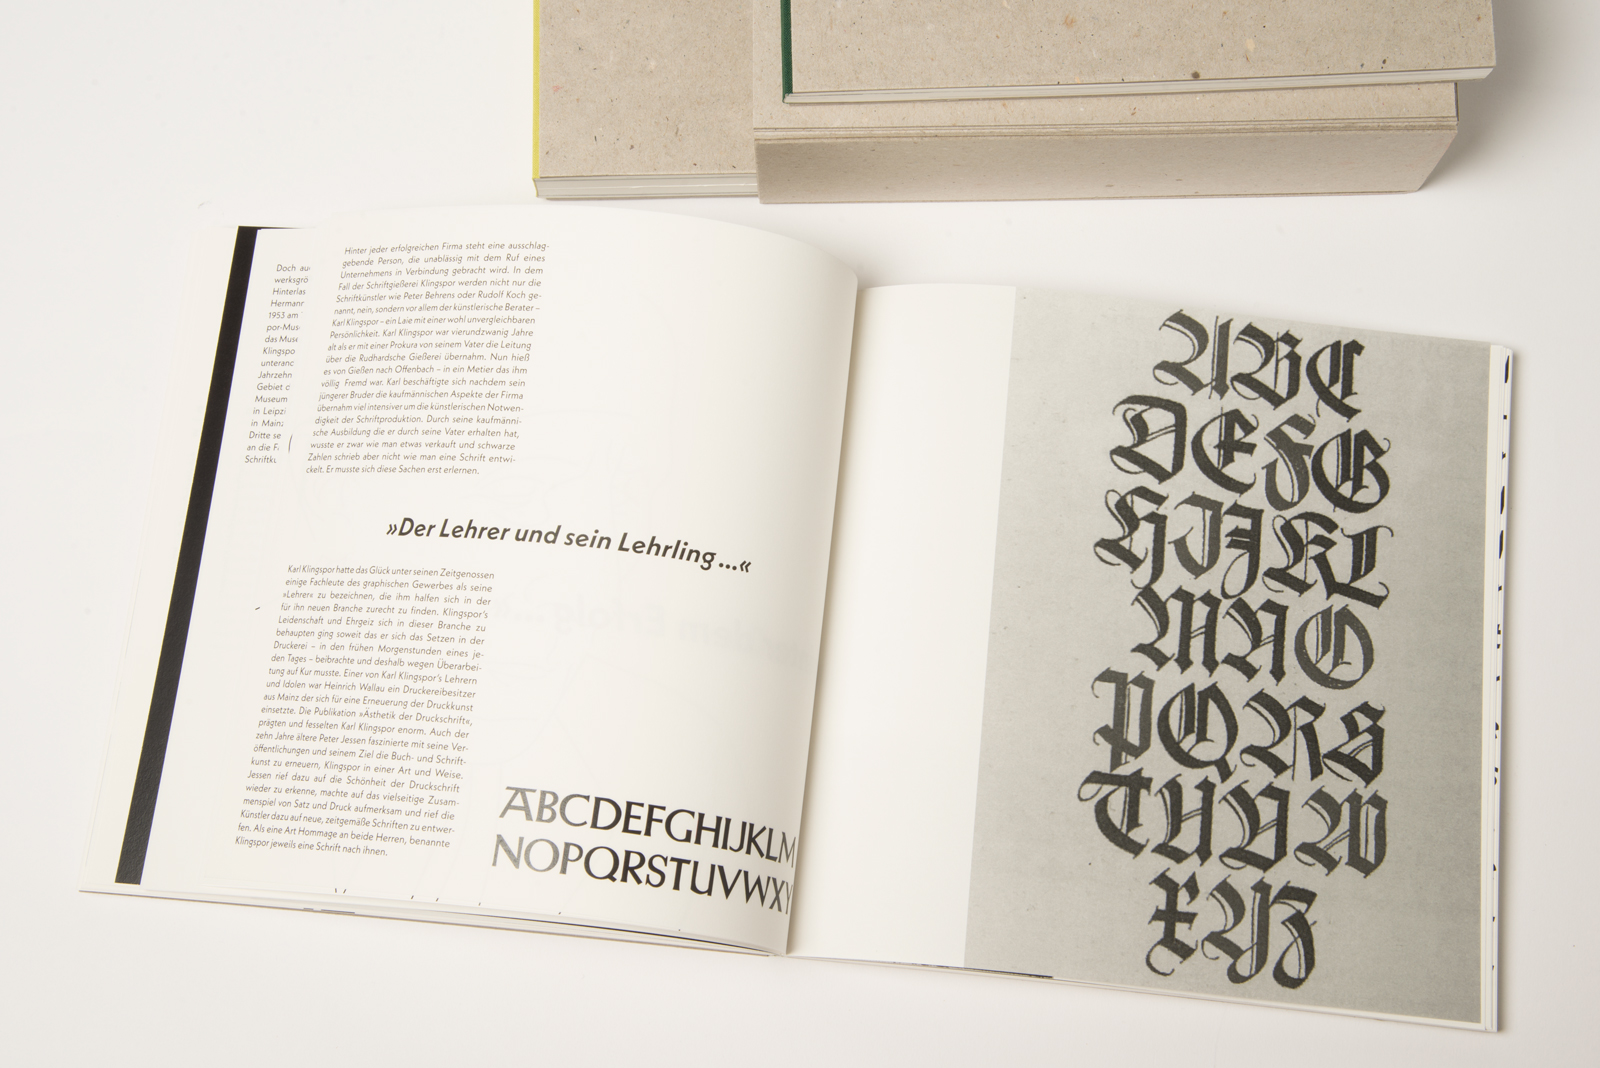 Doch au
werksgrö
Hinterlas
Hermanr
1953 am
por-Mus
das Muse
Klingspo
unteranc
Jahrzehn
Gebiet c
Museum
in Leipzi
in Mainz
Dritte se
an die F
Schriftku
Hinter jeder erfolgreichen Firma steht eine ausschlag-
gebende Person, die unablässig mit dem Ruf eines
Unternehmens in Verbindung gebracht wird. In dem
Fall der Schriftgießerei Klingspor werden nicht nur die
Schriftkünstler wie Peter Behrens oder Rudolf Koch ge-
nannt, nein, sondern vor allem der künstlerische Berater –
Karl Klingspor – ein Laie mit einer wohl unvergleichbaren
Persönlichkeit. Karl Klingspor war vierundzwanig Jahre
alt als er mit einer Prokura von seinem Vater die Leitung
über die Rudhardsche Gießerei übernahm. Nun hieß
es von Gießen nach Offenbach – in ein Metier das ihm
völlig Fremd war. Karl beschäftigte sich nachdem sein
jüngerer Bruder die kaufmännischen Aspekte der Firma
übernahm viel intensiver um die künstlerischen Notwen-
digkeit der Schriftproduktion. Durch seine kaufmänni-
sche Ausbildung die er durch seine Vater erhalten hat,
wusste er zwar wie man etwas verkauft und schwarze
Zahlen schrieb aber nicht wie man eine Schrift entwi-
ckelt. Er musste sich diese Sachen erst erlernen.
»Der Lehrer und sein Lehrling ...«
Karl Klingspor hatte das Glück unter seinen Zeitgenossen
einige Fachleute des graphischen Gewerbes als seine
»Lehrer« zu bezeichnen, die ihm halfen sich in der
für ihn neuen Branche zurecht zu finden. Klingspor's
Leidenschaft und Ehrgeiz sich in dieser Branche zu
behaupten ging soweit das er sich das Setzen in der
Druckerei – in den frühen Morgenstunden eines je-
den Tages – beibrachte und deshalb wegen Überarbei-
tung auf Kur musste. Einer von Karl Klingspor's Lehrern
und Idolen war Heinrich Wallau ein Druckereibesitzer
aus Mainz der sich für eine Erneuerung der Druckkunst
einsetzte. Die Publikation »Ästhetik der Druckschrift«,
prägten und fesselten Karl Klingspor enorm. Auch der
zehn Jahre ältere Peter Jessen faszinierte mit seine Ver-
öffentlichungen und seinem Ziel die Buch- und Schrift-
kunst zu erneuern, Klingspor in einer Art und Weise.
Jessen rief dazu auf die Schönheit der Druckschrift
wieder zu erkenne, machte auf das vielseitige Zusam-
menspiel von Satz und Druck aufmerksam und rief die
Künstler dazu auf neue, zeitgemäße Schriften zu entwer-
fen. Als eine Art Hommage an beide Herren, benannte
Klingspor jeweils eine Schrift nach ihnen.
ABCDEFGHIJKLM
NOPQRSTUVWXY
ABC
DEFG
HIJKL
MNO
PQRS
TUVW
XYZ